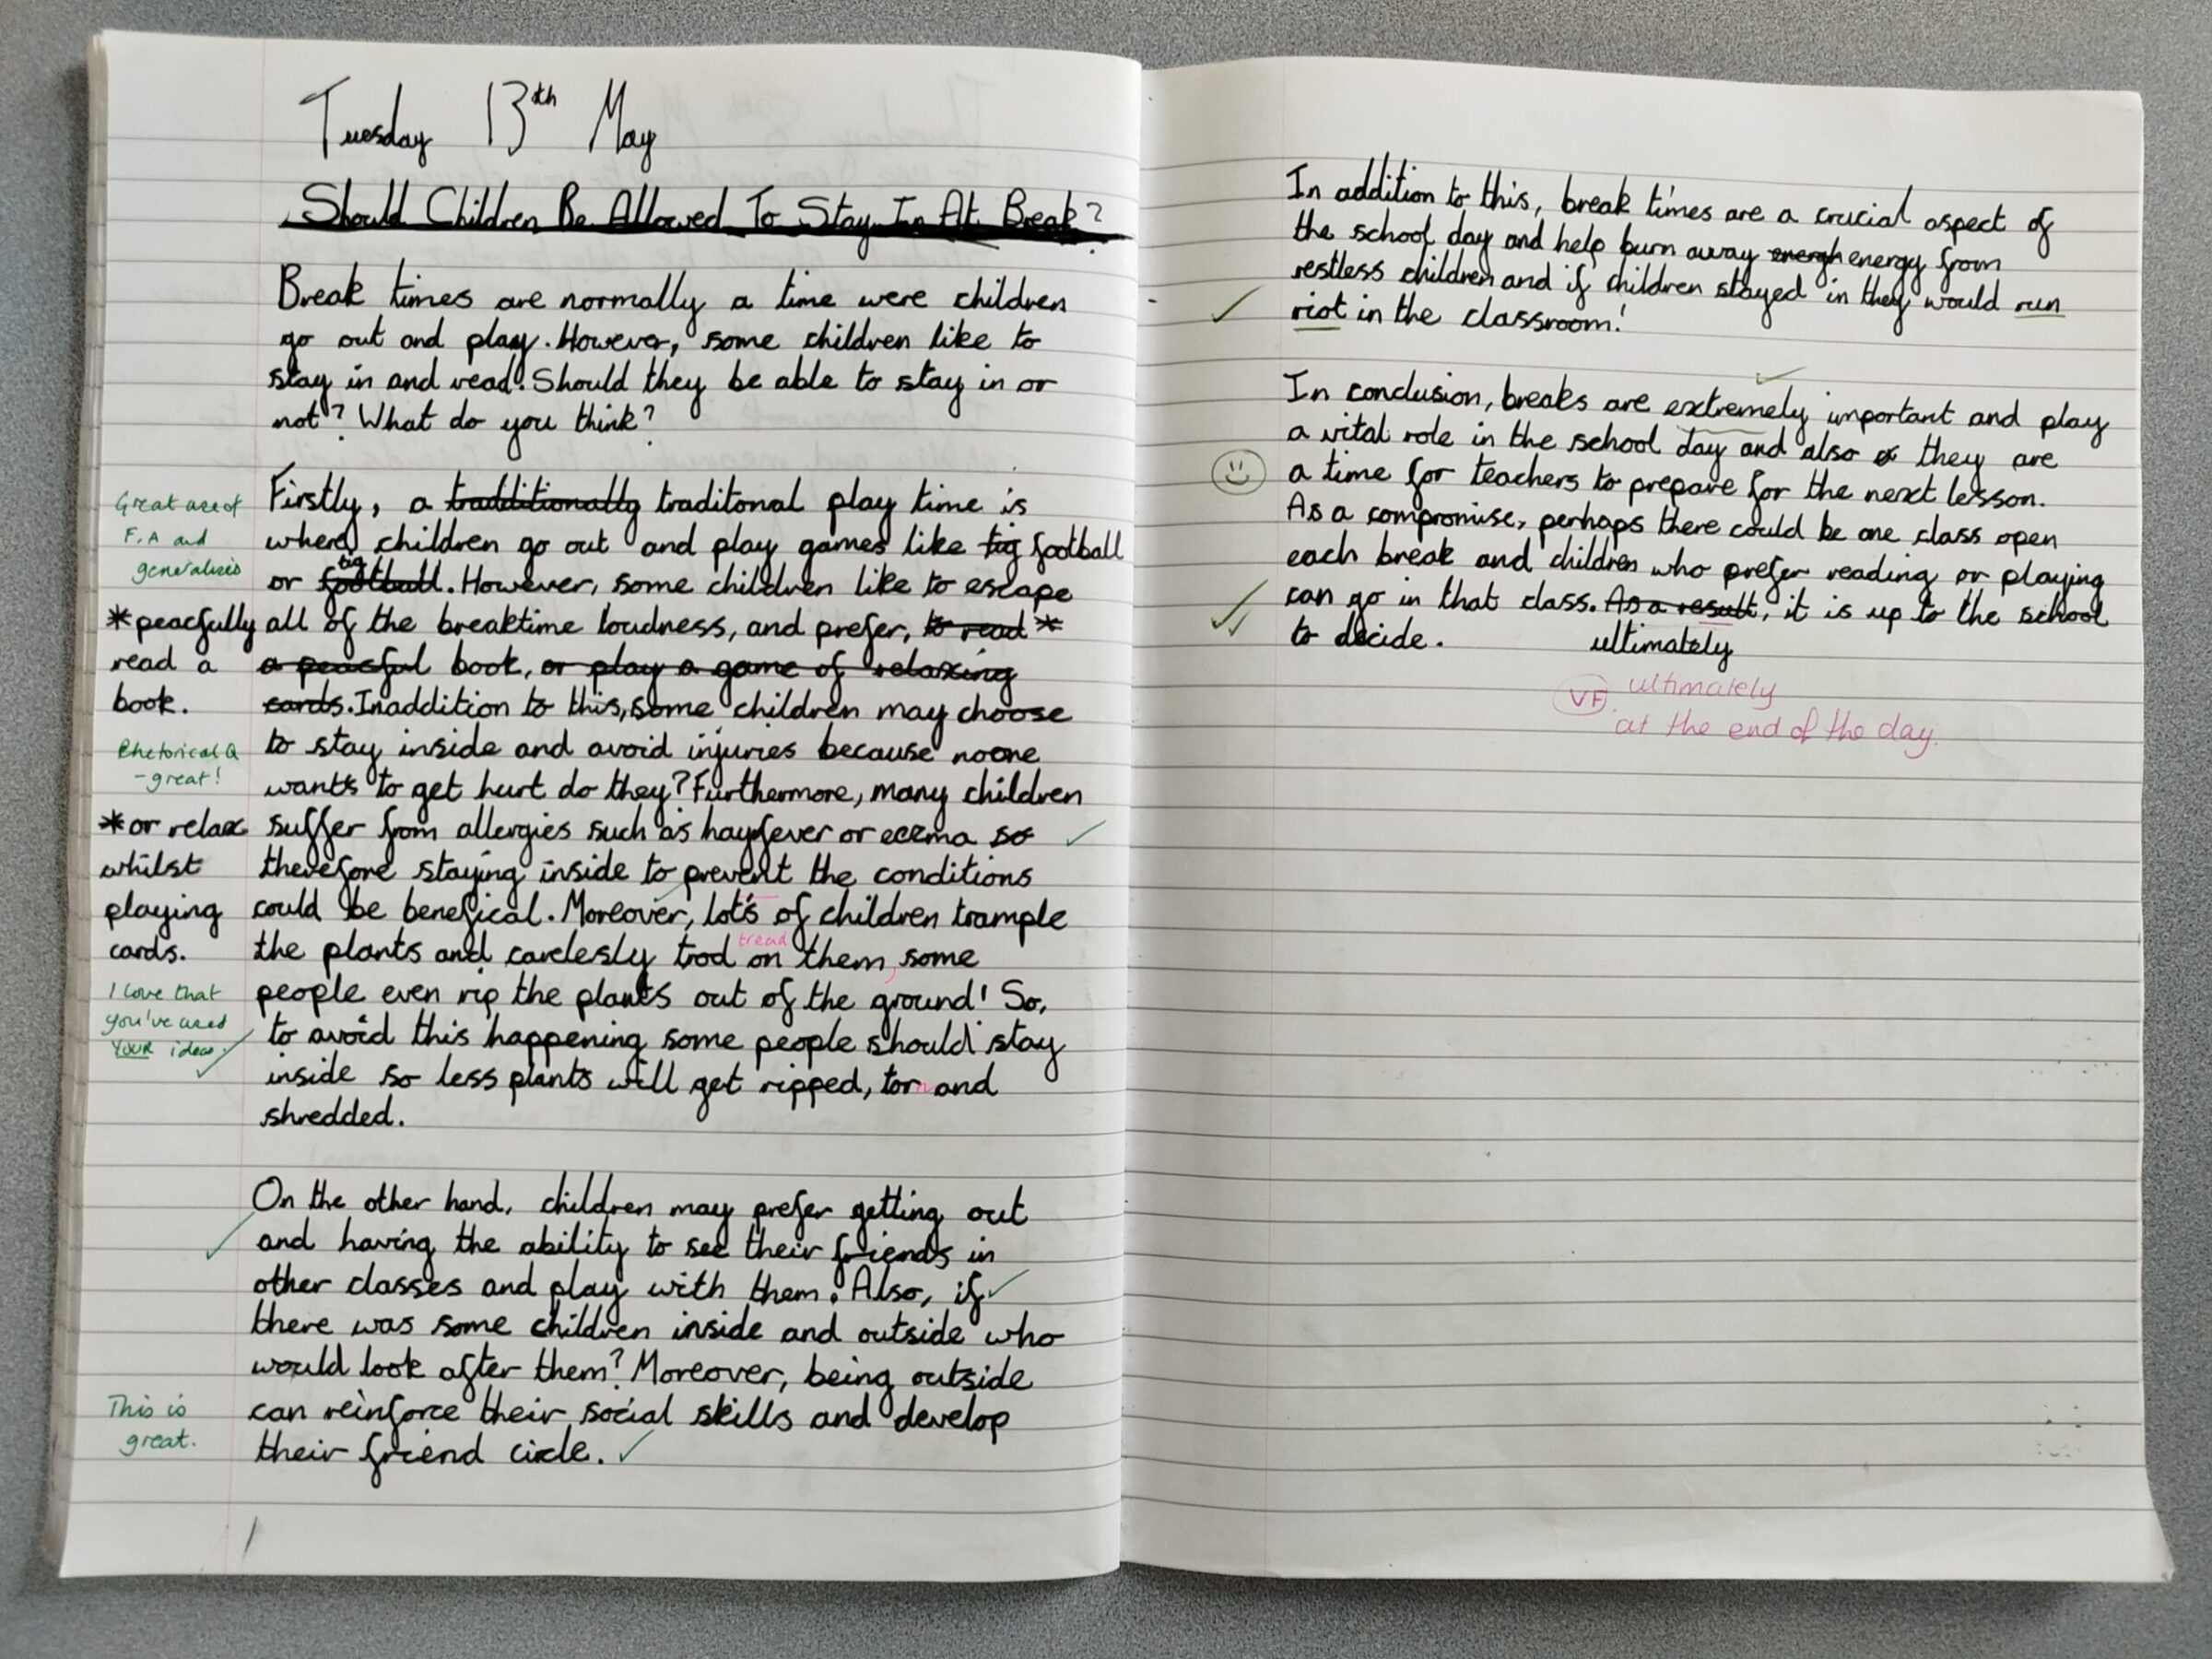 Tuesday 13th May
Should Children Be Allowed To Stay In At Break?
Break times are normally a time were children
go out and play. However, some children like to
stay in and read. Should they be able to stay in or
not? What do you think?
Great use of
F.A and
generalisers
Firstly, a tradditionally traditonal play time is
where children go out and play games like tig football
or football tig. However, some children like to escape
all of the breaktime loudness, and prefer, to read *
*peacfully
read a
book.
a peacful book, or play a game of relaxing
cards. Inaddition to this, some children may choose
to stay inside and avoid injuries because noone
wants to get hurt do they? Furthermore, many children
Rhetorical Q
- great!
suffer from allergies such as hayfever or eczma so
therefore staying inside to prevent the conditions
could be benefical. Moreover, lot's of children trample
*or relax
whilst
playing
cards.
the plants and carelesly trod on them, some
tread
people even rip the plants out of the ground! So,
to avoid this happening some people should stay
inside so less plants will get ripped, torn and
shredded.
I love that
you've used
YOUR ideas.
On the other hand, children may prefer getting out
and having the ability to see their friends in
other classes and play with them. Also, if
there was some children inside and outside who
would look after them? Moreover, being outside
can reinforce their social skills and develop
their friend circle.
This is
great.
In addition to this, break times are a crucial aspect of
the school day and help burn away energh energy from
restless children and if children stayed in they would run
riot in the classroom!
In conclusion, breaks are extremely important and play
a vital role in the school day and also they are
a time for teachers to prepare for the next lesson.
As a compromise, perhaps there could be one class open
each break and children who prefer reading or playing
can go in that class. As a result, it is up to the school
to decide. ultimately
VF ultimately
at the end of the day.